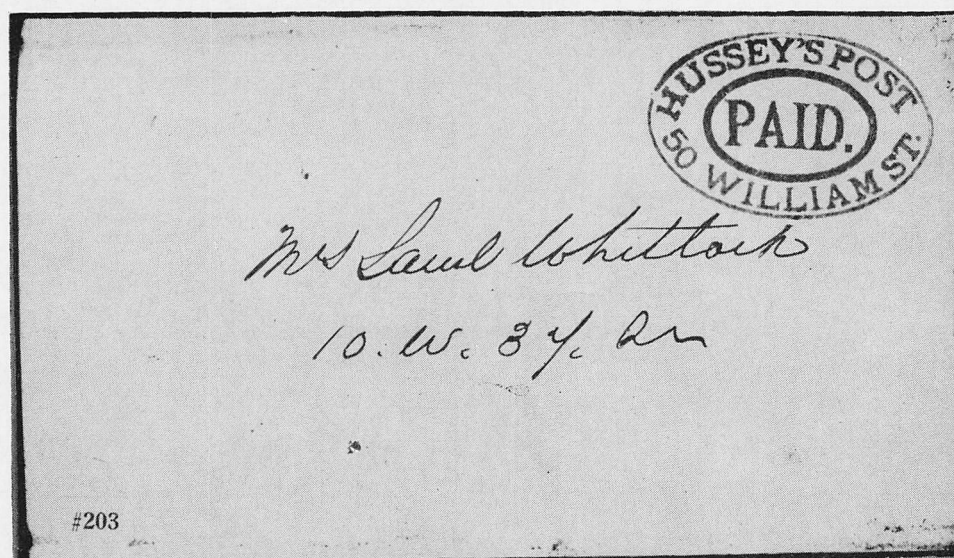 HUSSEY'S POST
PAID.
50 WILLIAM ST.
Mrs Saml Whittock
10. W. 37.
#203